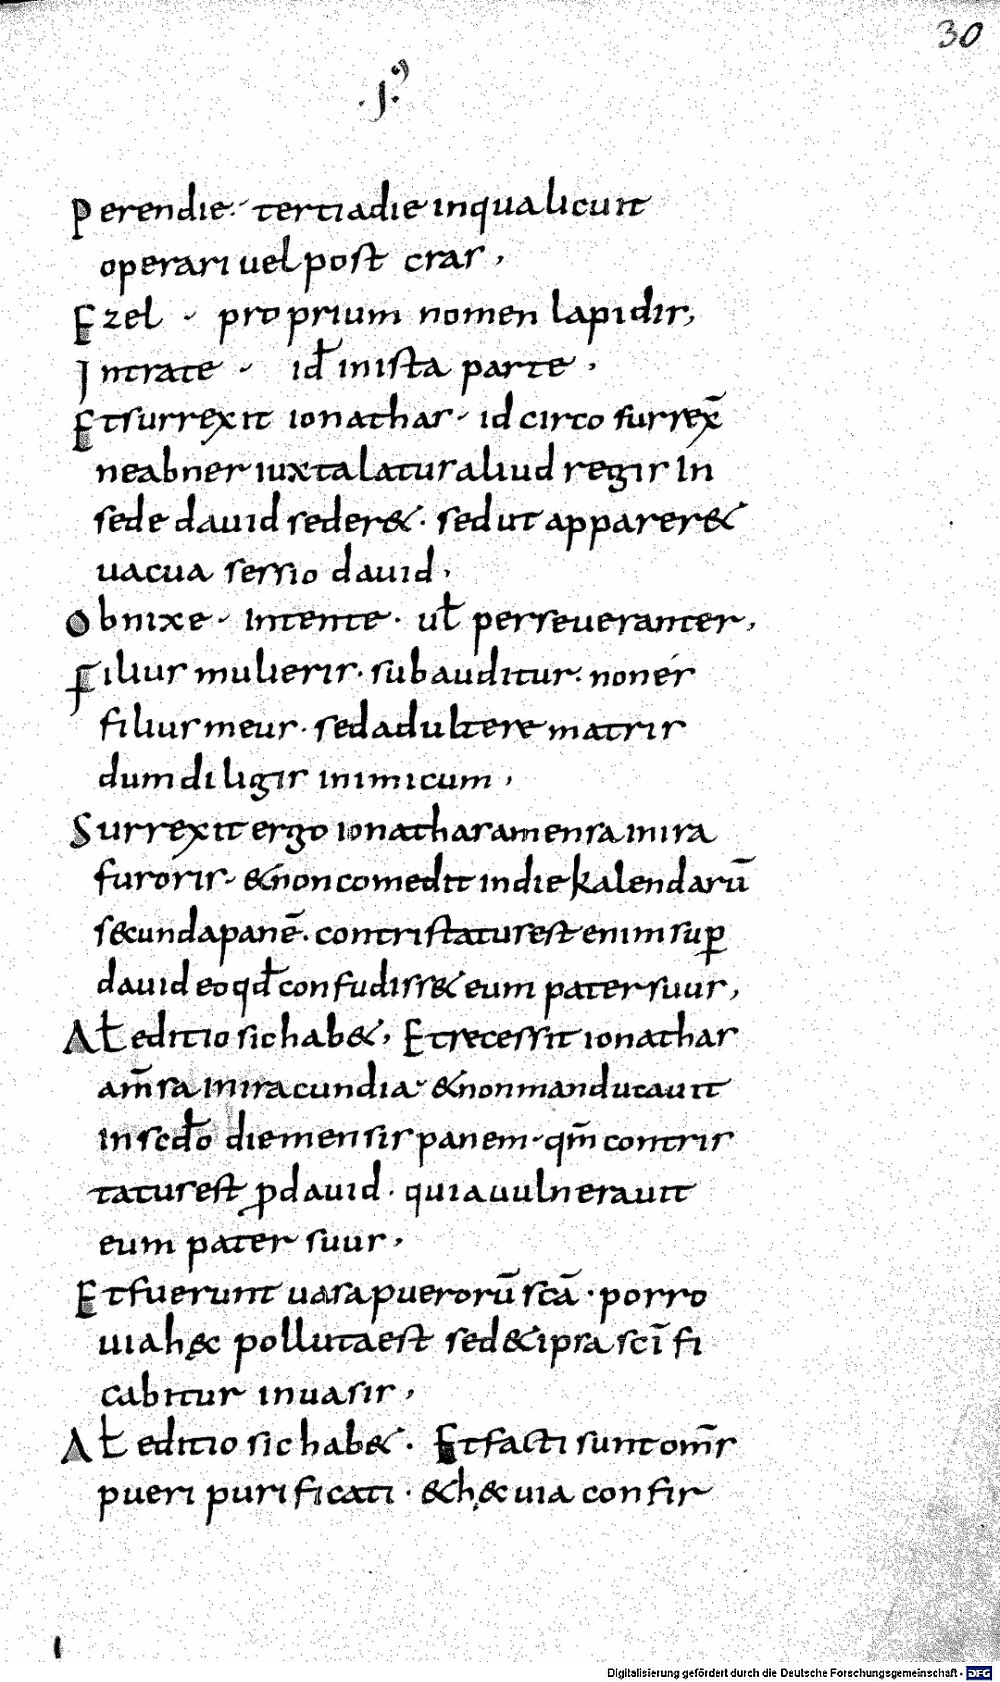 30
·j·
Perendie· tertia die in qua licuit
operari uel post cras,
Ezel · proprium nomen lapidis,
Intrate · id̄ in ista parte ,
Et surrexit ionathas · idcirco surrex̄
ne abner iuxta latus aliud regis in
sede dauid seder& · sed ut apparer&
uacua sessio dauid ,
Obnixe · intente · ul̄ perseueranter ,
Filius mulieris · subauditur · non és
filius meus · sed adultere matris
dum diligis inimicum ,
Surrexit ergo ionathas a mensa in ira
furoris · & non comedit in die kalendarū
s&cunda panē · contristatus est enim sup̱
dauid eo qd̄ confudiss& eum pater suus ,
Al̄ editio sic hab& , Et recessit ionathas
a m̄sa in iracundia · & non manducauit
in scd̄o die mensis panem · qm̄ contris
tatus est ꝓ dauid · quia uulnerauit
eum pater suus ,
Et fuerunt uasa puerorū scā · porro
uia hęc polluta est sed & ipsa scī fi
cabitur in uasis ,
Al̄ editio sic hab& · Et facti sunt om̄s
pueri purificati · & h&c uia con fir
Digitalisierung gefördert durch die Deutsche Forschungsgemeinschaft · DFG